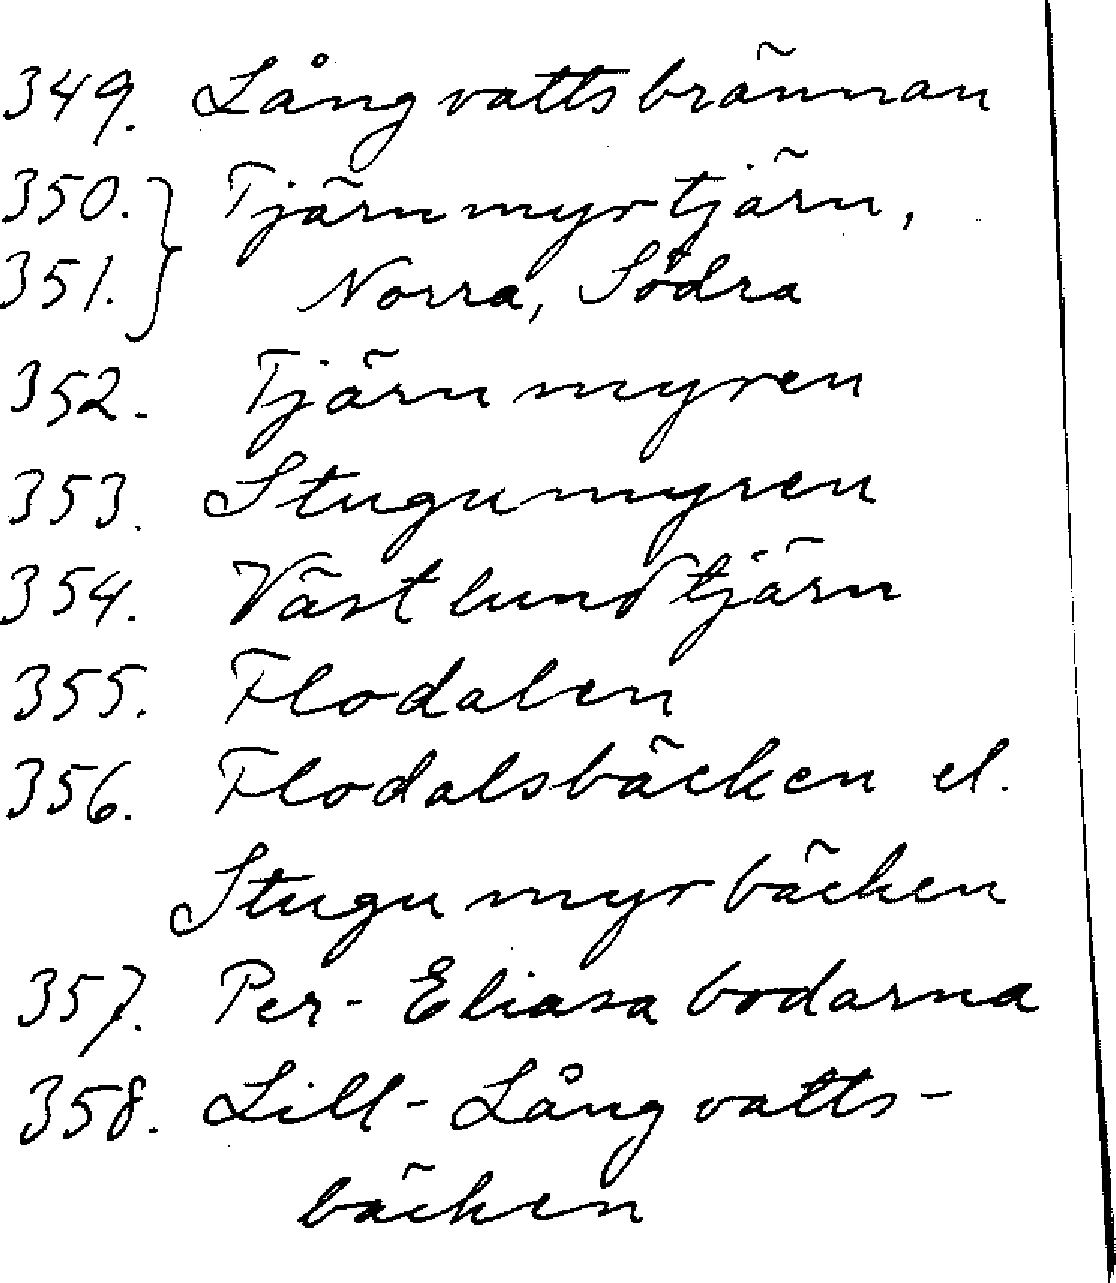 349. Långvattsbrännan
350. } Tjärnmyrtjärn,
351. Norra, Södra
352. Tjärnmyren
353. Stugumyren
354. Västlundtjärn
355. Flodalen
356. Flodalsbäcken el.
Stugumyrbäcken
357. Per-Eliasabodarna
358. Lill-Långvatts-
bäcken